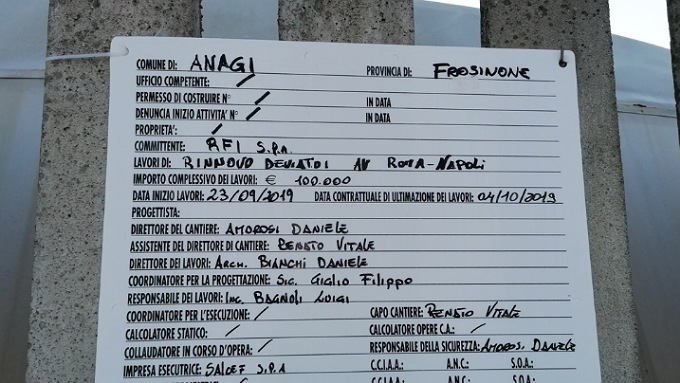 COMUNE DI: ANAGI PROVINCIA DI: FROSINONE
UFFICIO COMPETENTE: /
PERMESSO DI COSTRUIRE N° / IN DATA
DENUNCIA INIZIO ATTIVITA' N° / IN DATA
PROPRIETA': /
COMMITTENTE: RFI S.P.A.
LAVORI DI: RINNOVO DEVIATOI AV ROMA-NAPOLI
IMPORTO COMPLESSIVO DEI LAVORI: € 100.000
DATA INIZIO LAVORI: 23/09/2019 DATA CONTRATTUALE DI ULTIMAZIONE DEI LAVORI: 04/10/2019
PROGETTISTA:
DIRETTORE DEL CANTIERE: AMOROSI DANIELE
ASSISTENTE DEL DIRETTORE DI CANTIERE: RENATO VITALE
DIRETTORE DEI LAVORI: ARCH. BIANCHI DANIELE
COORDINATORE PER LA PROGETTAZIONE: SIG. GIGLIO FILIPPO
RESPONSABILE DEI LAVORI: ING. BAGNOLI LUIGI
COORDINATORE PER L'ESECUZIONE: / CAPO CANTIERE: RENATO VITALE
CALCOLATORE STATICO: / CALCOLATORE OPERE C.A.: /
COLLAUDATORE IN CORSO D'OPERA: / RESPONSABILE DELLA SICUREZZA: AMOROSI DANIELE
IMPRESA ESECUTRICE: SALCEF S.P.A C.C.I.A.A.: A.N.C.: S.O.A.:
C.C.I.A.A.: A.N.C.: S.O.A.: